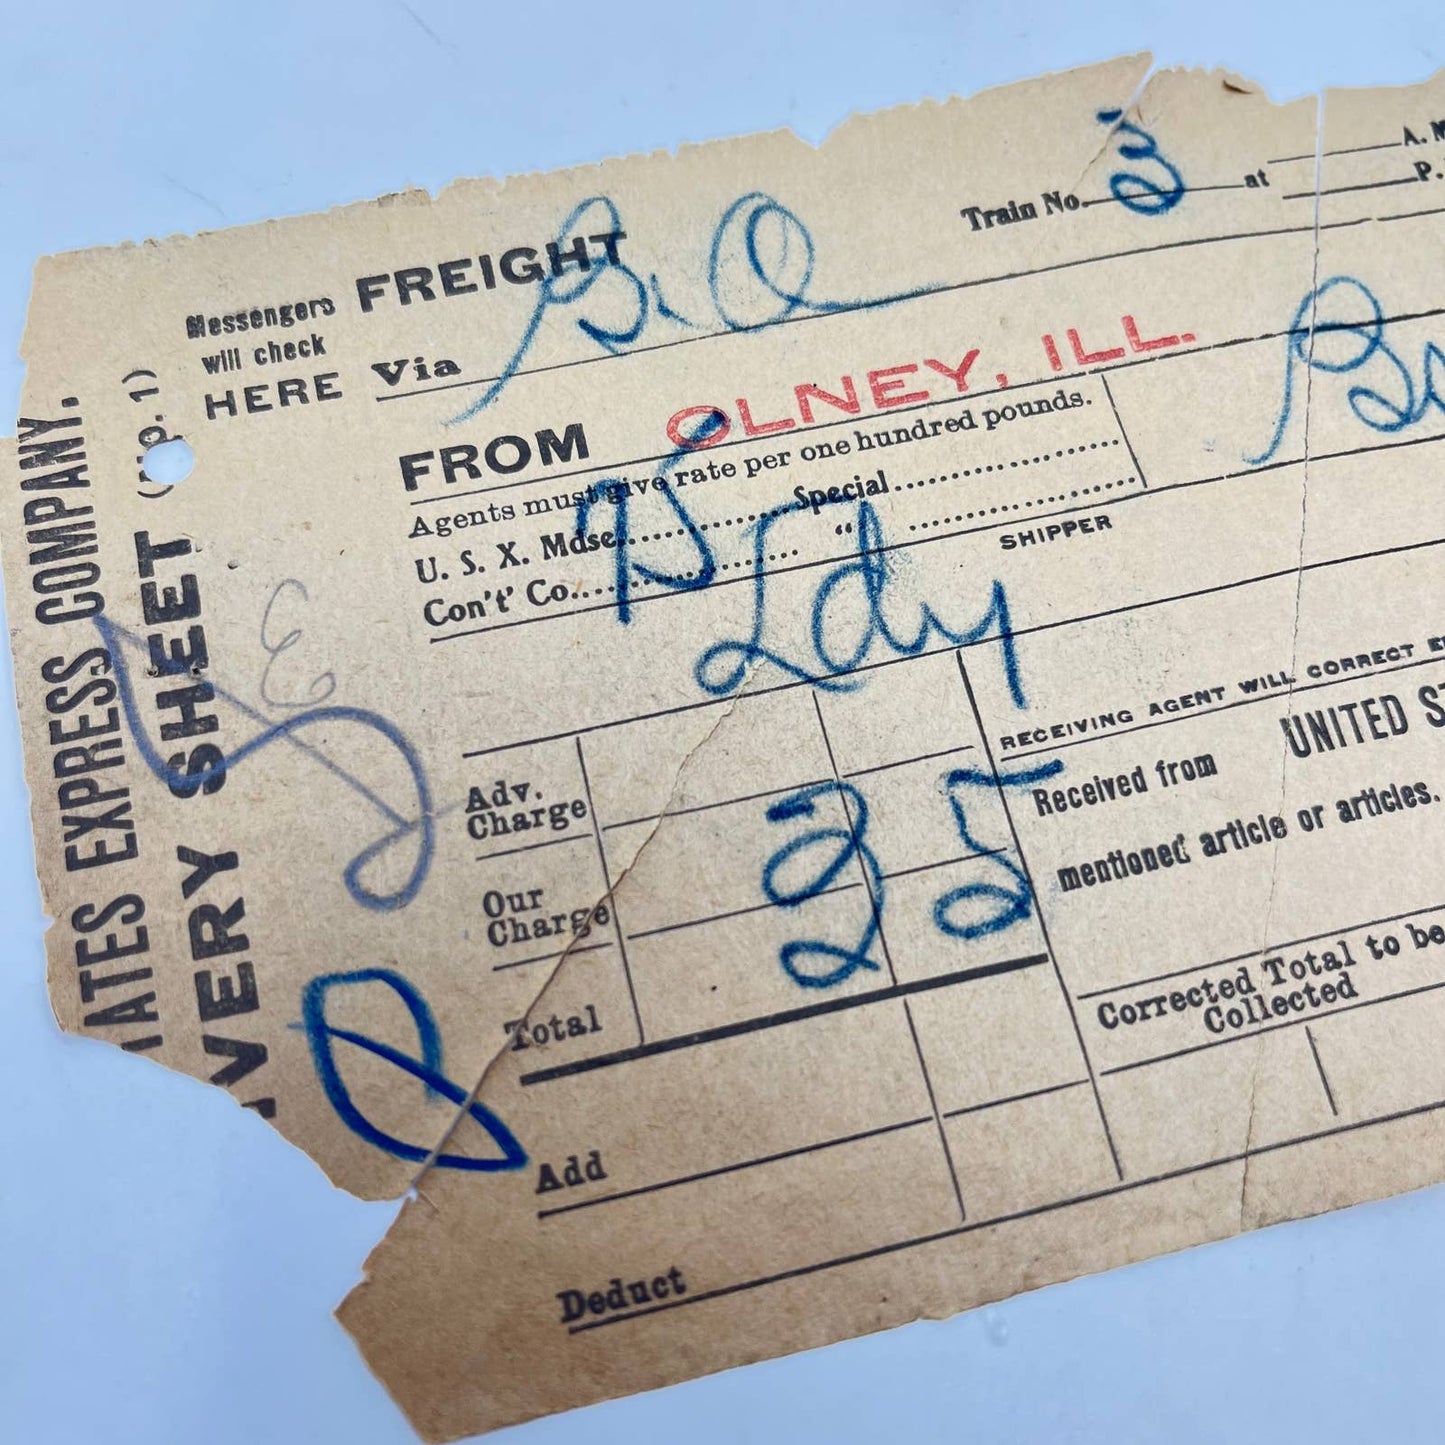 ATES EXPRESS COMPANY.
VERY SHEET
Messengers
will check
HERE
FREIGHT
Train No. 3 at
A. M
P.
Via
FROM OLNEY, ILL.
Agents must give rate per one hundred pounds.
U. S. X. Mdse. Special
Con't' Co. "
SHIPPER
RECEIVING AGENT WILL CORRECT E
Received from UNITED ST
mentioned article or articles.
Adv.
Charge
Our
Charge
35
Total
Corrected Total to be
Collected
Add
Deduct